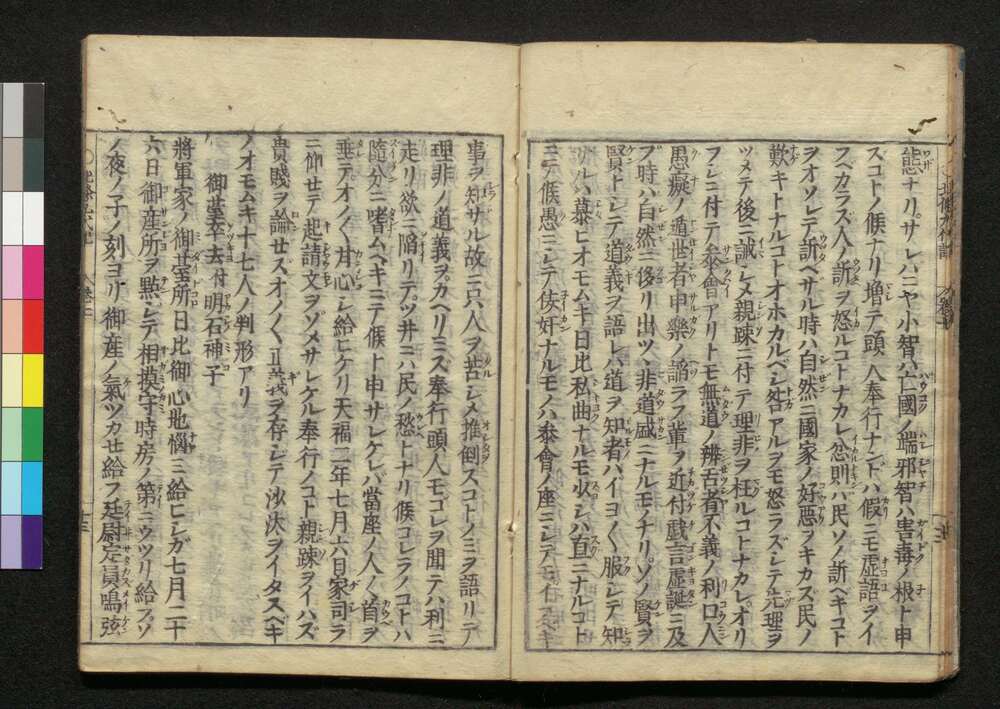 態ナリサレハニヤ小智ハ亡國ノ端邪智ハ害毒ノ根ト申
スコトノ候ナリ増テ頭人奉行ナンドハ假ニモ虚語ヲイ
フベカラズ人ノ訴ヲ怒ルコトナカレ忿則ハ民ソノ訴ベキコト
ヲオソレテ訴ベザル時ハ自然ニ國家ノ好惡ヲキカズ民ノ
歎キナルコトオホカルベシ咎アルヲモ怒ラズシテ先理ヲ
ツメテ後ニ誡シメ親踈ニ付テ理非ヲ枉ルコトナカレオリ
フレニ付テ參會アリトモ無道ノ辨舌者不義ノ利口人
愚癡ノ遁世者申樂ノ謟ラフ輩ヲ近付戯言虚誕ニ及
ブ時ハ自然ニ侈リ出ツヽ非道盛ニナルモノナリソノ賢ヲ
賢トシテ道義ヲ語レハ道ヲ知者ハイヨ〱服シテ知
ザルハ慕ヒオモムキ日比私曲ナルモ少シハ直ニナルコト
ニテ候愚ニシテ佞奸ナルモノハ參會ノ座ニシテモ有スベキ
事ヲ知サル故ニ只人ヲ苦シメ推倒スコトノミヲ語リテ
理非ノ道義ヲカヘリミズ奉行頭人モコレヲ聞テハ利ニ
走リ欲ニ陷リテツ井ニハ民ノ愁トナリ候コレラノコトハ
隨分ニ嗜ムベキニテ候ト申サレケレバ當座ノ人〻首ヲ
垂テオノ〱甘心シ給ヒケリ天福二年七月六日家司ラ
ニ仰セテ起請文ヲゾメサレケル奉行ノコト親踈ヲイハズ
貴賤ヲ論セズオノ〱正義ヲ存シテ沙汰ヲイタスベキ
ノオモムキ十七人ノ判形アリ
御臺卒去付明石神子
將軍家ノ御臺所日比御心地惱ミ給ヒシガ七月二十
六日御産所ヲ點シテ相摸守時房ノ第ニウツリ給フソ
ノ夜ノ子ノ刻ヨリ御産ノ氣ツカセ給フ廷尉定員鳴弦